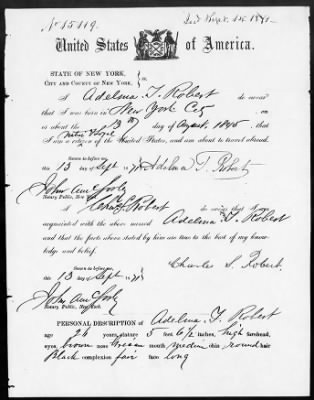 No 15119.
United States of America.
STATE OF NEW YORK,
CITY AND COUNTY OF NEW YORK, } ss.
I Adelma T. Robert do swear
that I was born in New York City
on or about the 13th day of August, 1845, that
I am a citizen of the United States, and am about to travel abroad.
Sworn to before me
this 13 day of Sept 1871 Adelma T. Robert
Notary Public, New York.
I Chas S. Robert do swear that I am
acquainted with the above named Adelma T. Robert
and that the facts above stated by him are true to the best of my know-
ledge and belief.
Sworn to before me
this 13 day of Sept 1871
Charles S. Robert.
Notary Public, New York.
PERSONAL DESCRIPTION of Adelma T. Robert
age 26 years, stature 5 feet 6 1/2 inches, high forehead,
eyes, brown nose mouth medium chin round hair
Black complexion fair face long